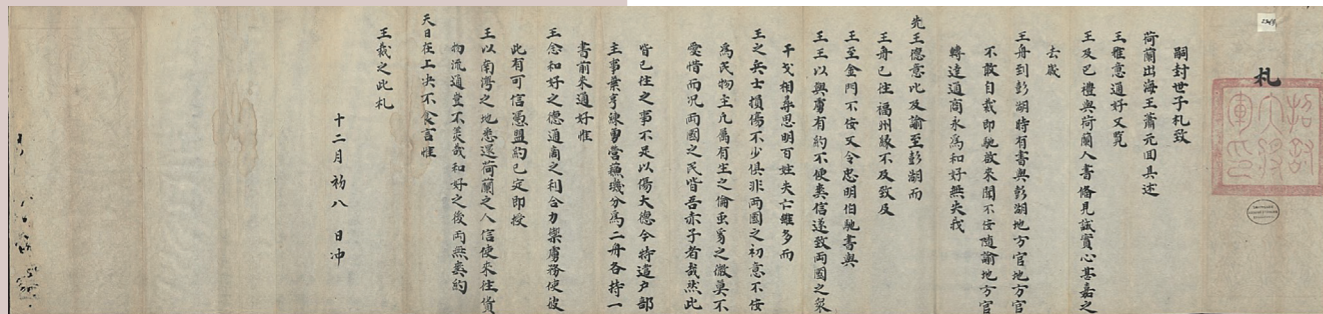 札
嗣封世子札致
荷蘭出海王蕭元回具述
王雅意通好又覽
王及巴禮與荷蘭人書備見誠實心甚嘉之
去歲
王舟到彭湖時有書與彭湖地方官地方官
不敢自裁即馳啟來聞不佞隨諭地方官
轉達通商永為和好無失我
先王德意比及諭至彭湖而
王舟已往福州緣不及致及
王至金門不佞又令忠明伯馳書與
王王以與虜有約不便爽信遂致兩國之眾
干戈相尋思明百姓失亡雖多而
王之兵士損傷不少俱非兩國之初意不佞
為民物主凡屬有生之倫虫豸之微莫不
愛惜而况兩國之民皆吾赤子者哉然此
皆已往之事不足以傷大德今特遣戶部
主事葉亨練勇營陳璣分為二舟各持一
書前來通好惟
王念和好之德通商之利合力禦虜務使彼
此有可信憑盟約已定即授
王以南灣之地悉還荷蘭之人信使來往貨
物流通豈不美哉和好之後兩無爽約
天日在上决不食言惟
王裁之此札
十二月初八日冲